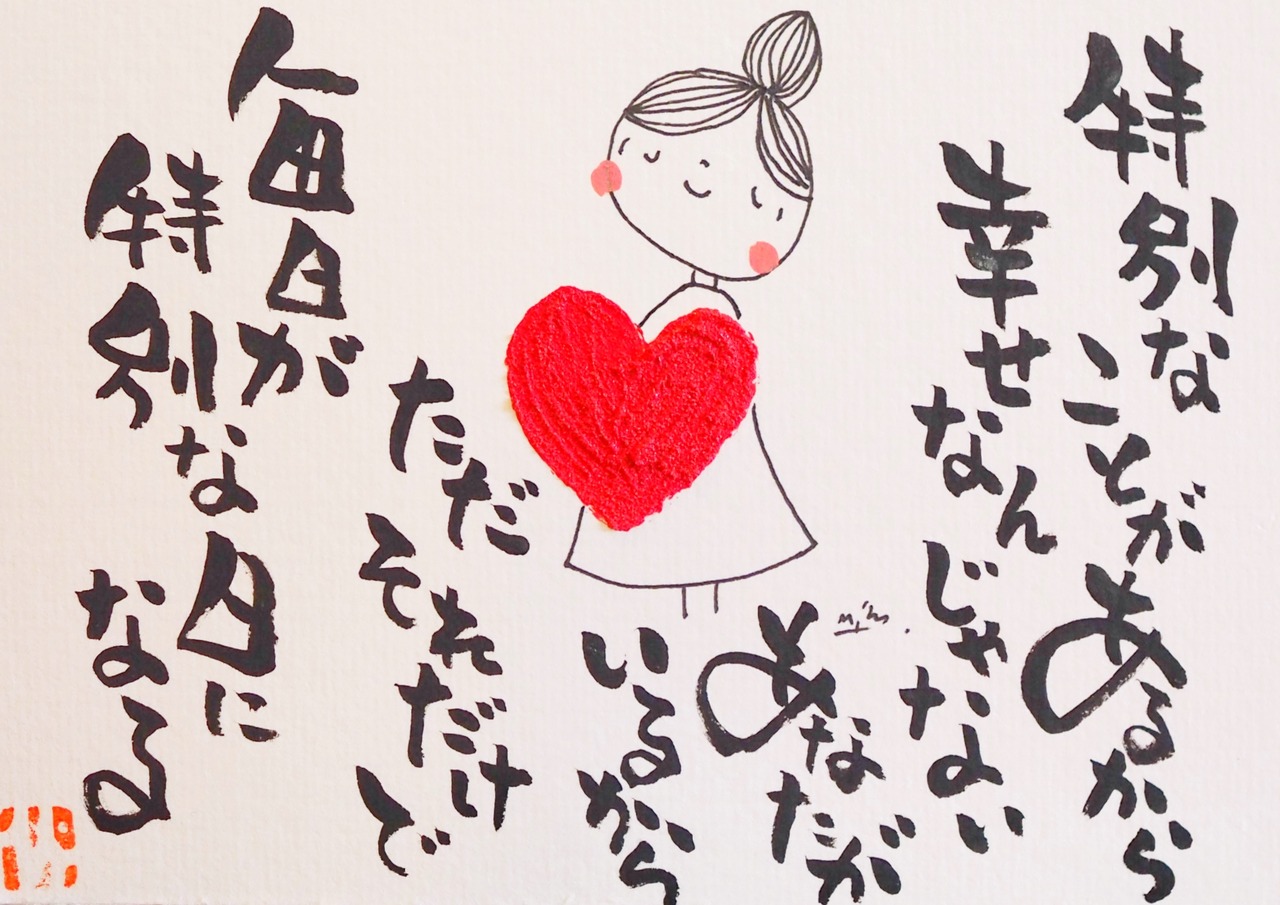 特別な
ことが
あるから
幸せなん
じゃない
あなたが
いるから
ただ
それだけで
毎日が
特別な日に
なる